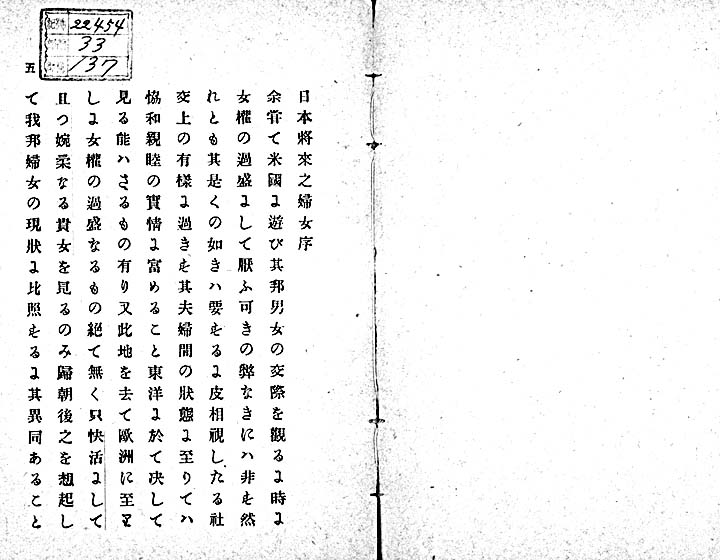 日本將來之婦女序
余甞て米國に遊び其邦男女の交際を觀るに時に
女權の過盛にして厭ふ可きの弊なきにハ非ず然
れとも其是くの如きハ要するに皮相視したる社
交上の有樣に過きず其夫婦間の狀態に至りてハ
協和親睦の實情に富めること東洋に於て决して
見る能ハさるもの有り又此地を去て歐洲に至れ
しに女權の過盛なるもの絕て無く只快活にして
且つ婉柔なる貴女を見るのみ歸朝後之を想起し
て我邦婦女の現狀に比照するに其異同あること
五
22454
33
137